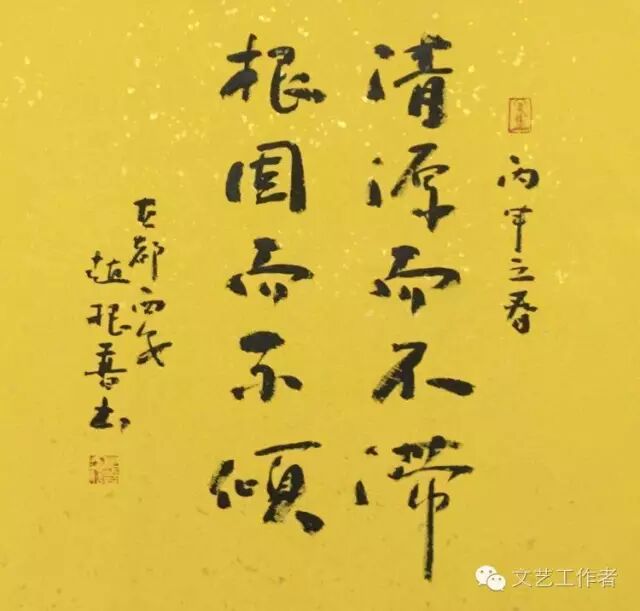 丙申之春
清源而不滞
根固而不傾
古都西安
趙根喜书
文艺工作者